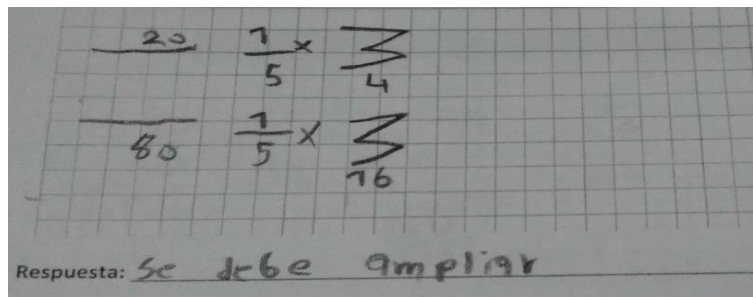 20 1/5 x Σ 4
80 1/5 x Σ 16
Respuesta: Se debe ampliar